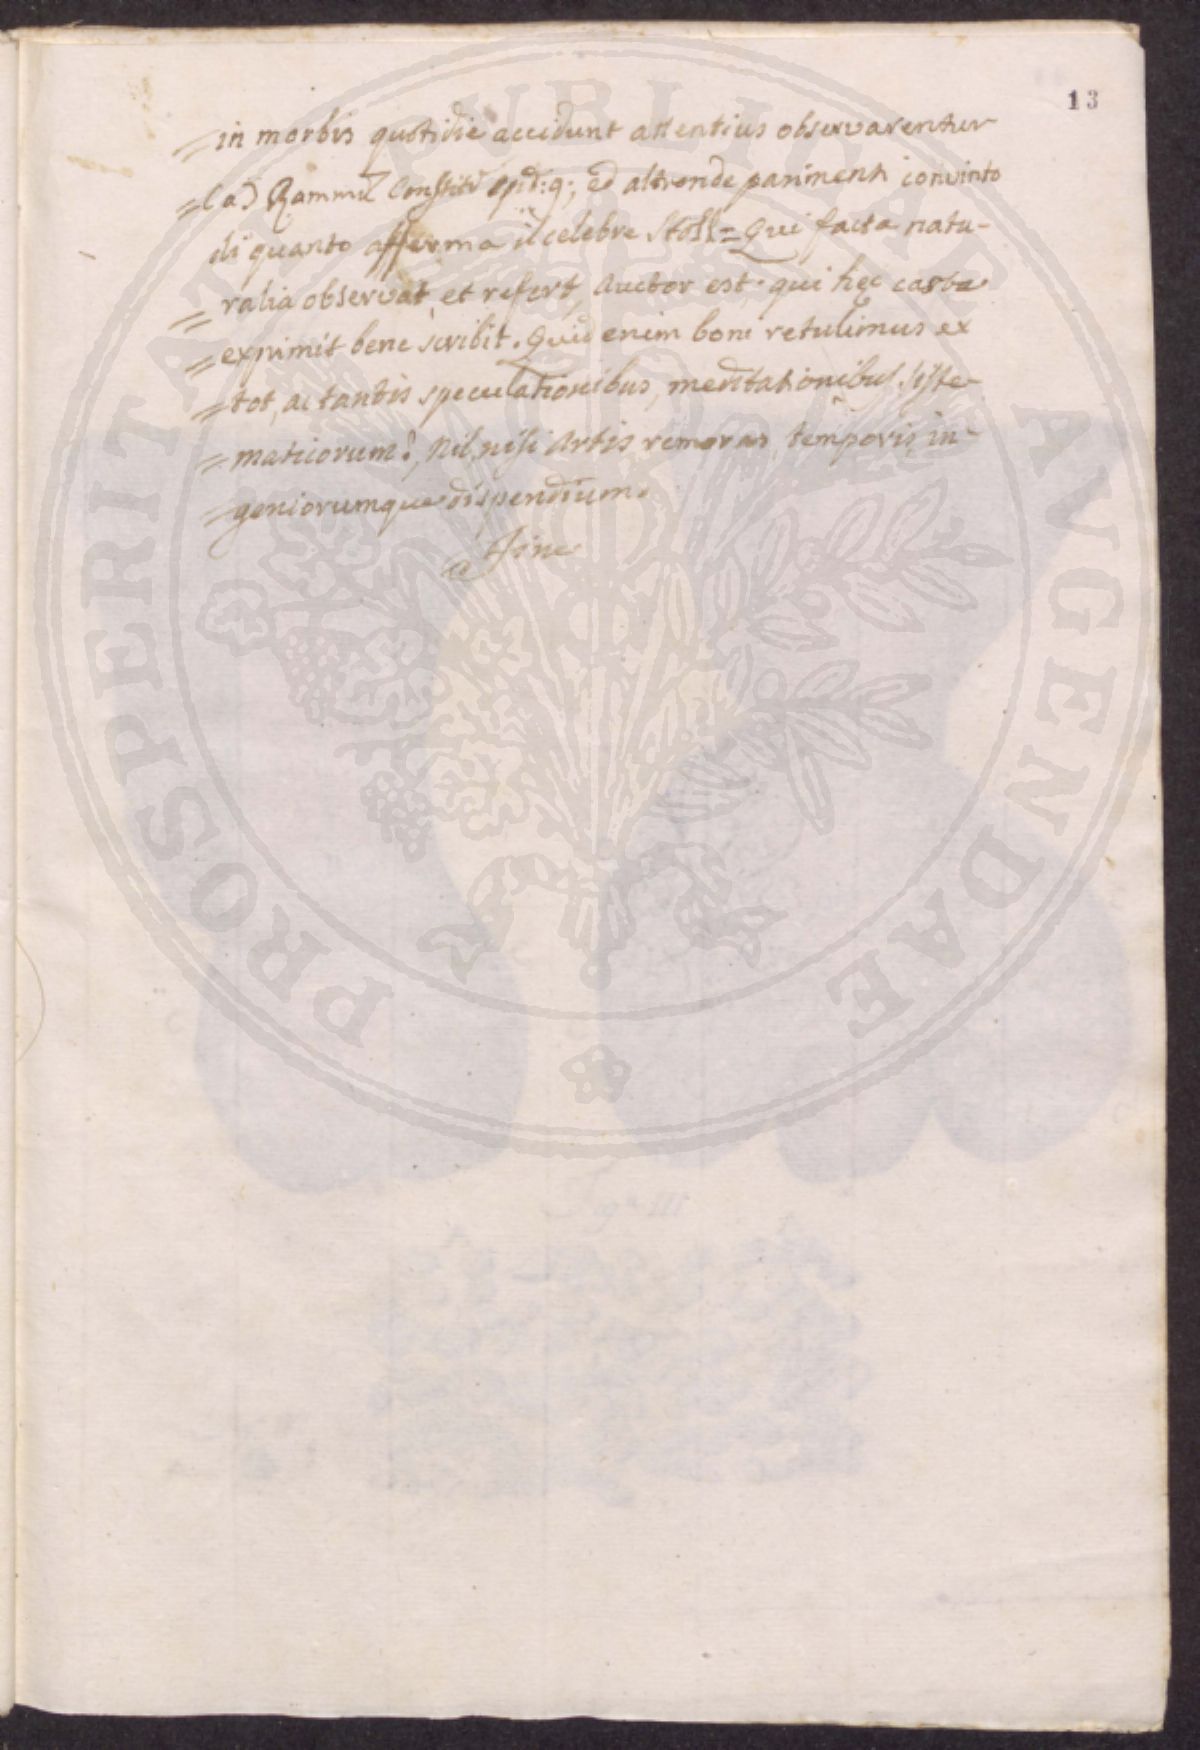 13
= in morbis quotidie accidunt attentius observarentur
= (a) Rammz Constit Epid: 9; ed altronde parimenti convinto
di quanto afferma il celebre Stoll = Qui facta natu-
= ralia observat, et refert, Auctor est; qui hec casta
= exprimit bene scribit. Quid enim boni retulimus ex
= tot, ac tantis speculationibus, meditationibus siste-
= maticorum? Nil, nisi Artis remoras, temporis, in-
= geniorumque dispendium.
Fine
Fig.a III
PROSPERITATI PUBLICAE AVGENDAE